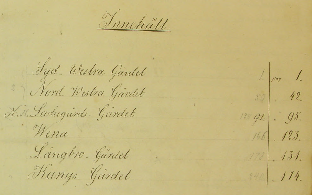 Innehåll
Syd Westra Gärdet 1. pag 1.
Nord Westra Gärdet 42.
Ladugårds Gärdet 91. 98.
Wena 123.
Långbro Gärdet 131.
Kungs Gärdet 114.